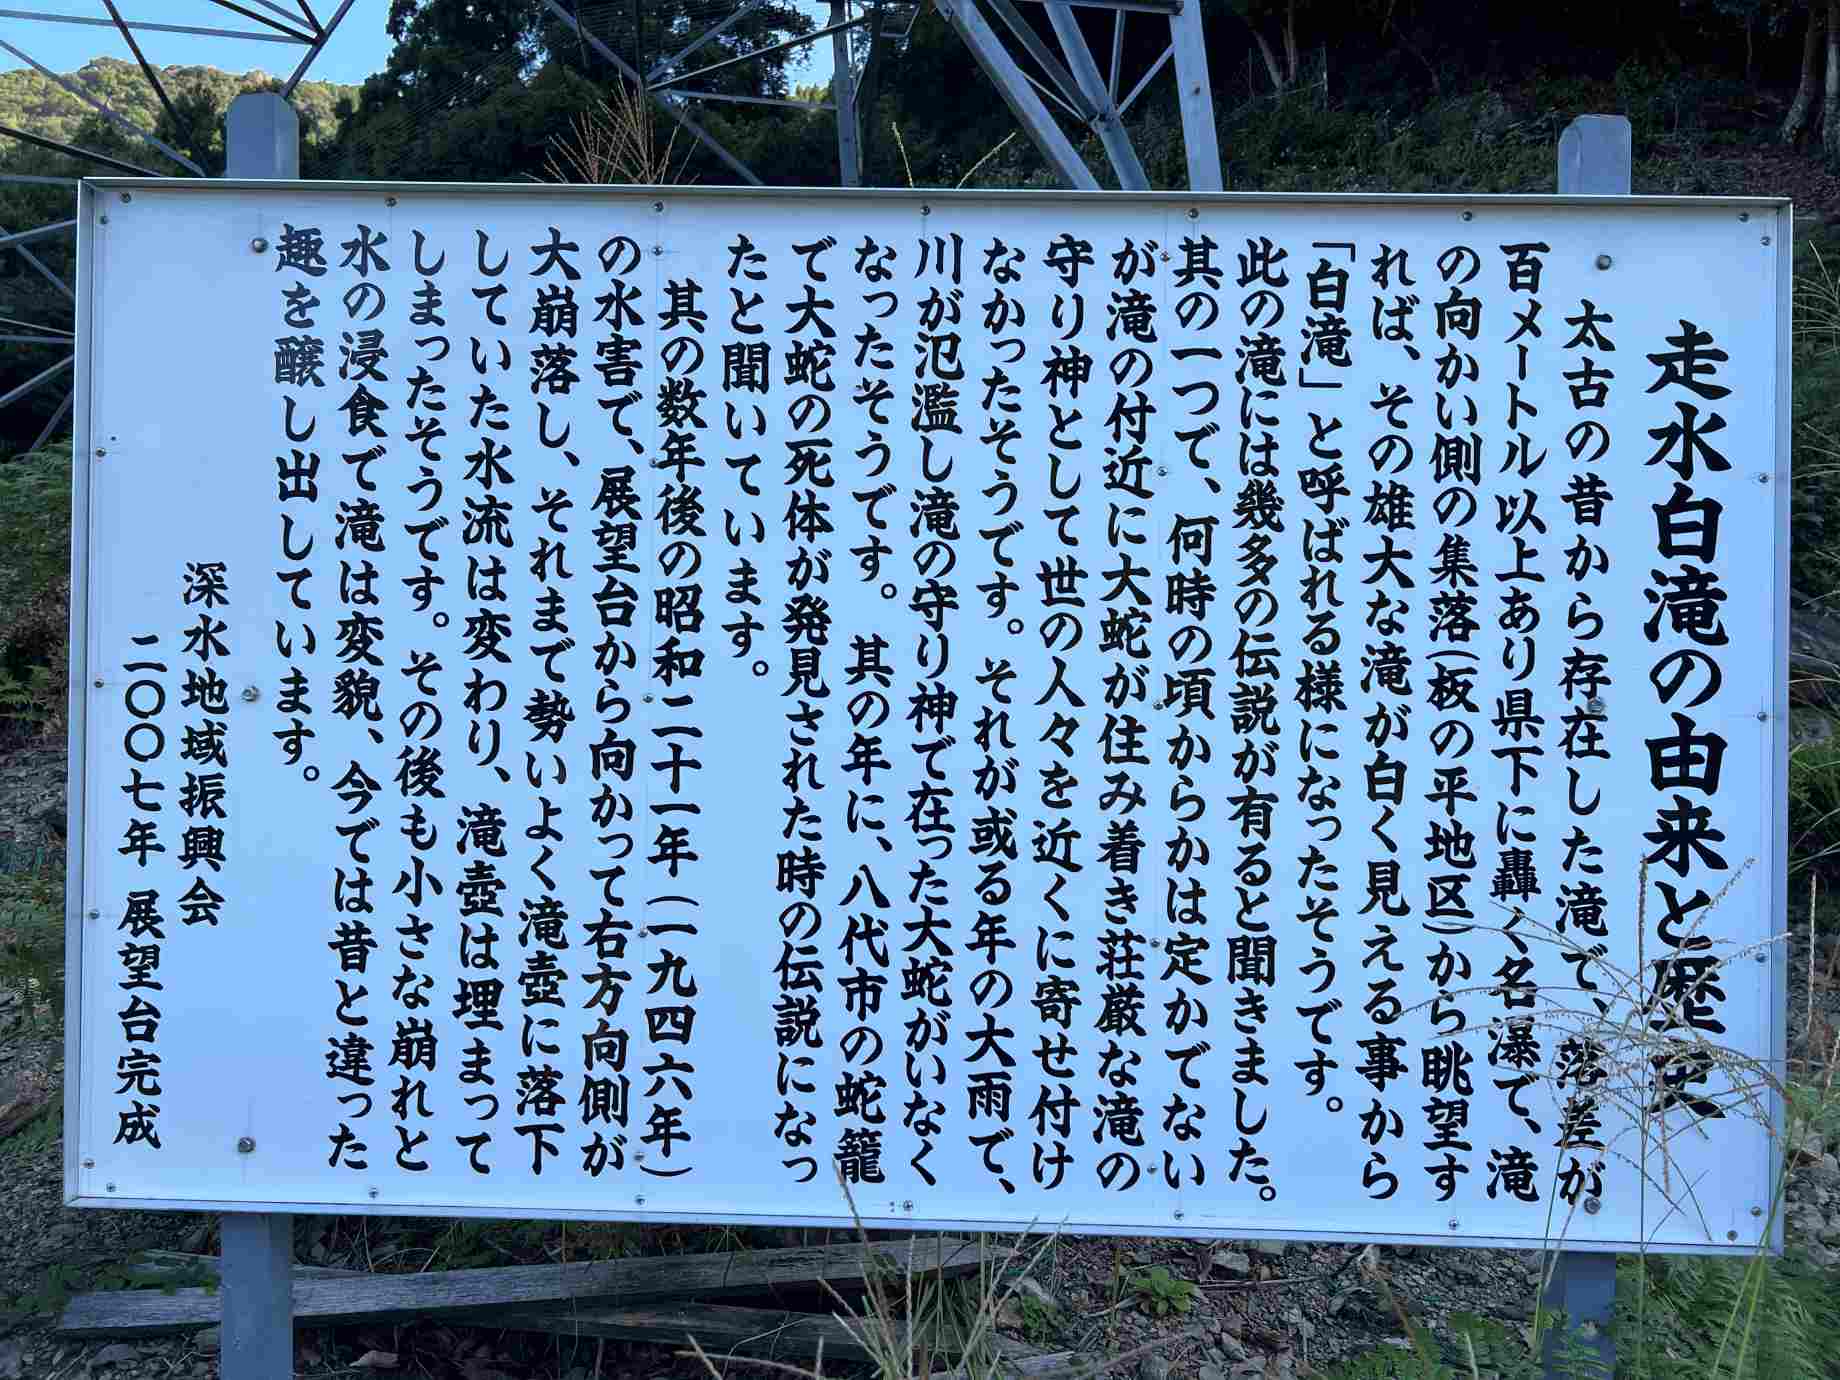 走水白滝の由来と歴史
太古の昔から存在した滝で、落差が
百メートル以上あり県下に轟く名瀑で、滝
の向かい側の集落(板の平地区)から眺望す
れば、その雄大な滝が白く見える事から
「白滝」と呼ばれる様になったそうです。
此の滝には幾多の伝説が有ると聞きました。
其の一つで、何時の頃からかは定かでない
が滝の付近に大蛇が住み着き荘厳な滝の
守り神として世の人々を近くに寄せ付け
なかったそうです。それが或る年の大雨で、
川が氾濫し滝の守り神で在った大蛇がいなく
なったそうです。其の年に、八代市の蛇籠
で大蛇の死体が発見された時の伝説になっ
たと聞いています。
其の数年後の昭和二十一年(一九四六年)
の水害で、展望台から向かって右方向側が
大崩落し、それまで勢いよく滝壺に落下
していた水流は変わり、滝壺は埋まって
しまったそうです。その後も小さな崩れと
水の浸食で滝は変貌、今では昔と違った
趣を醸し出しています。
深水地域振興会
二〇〇七年 展望台完成